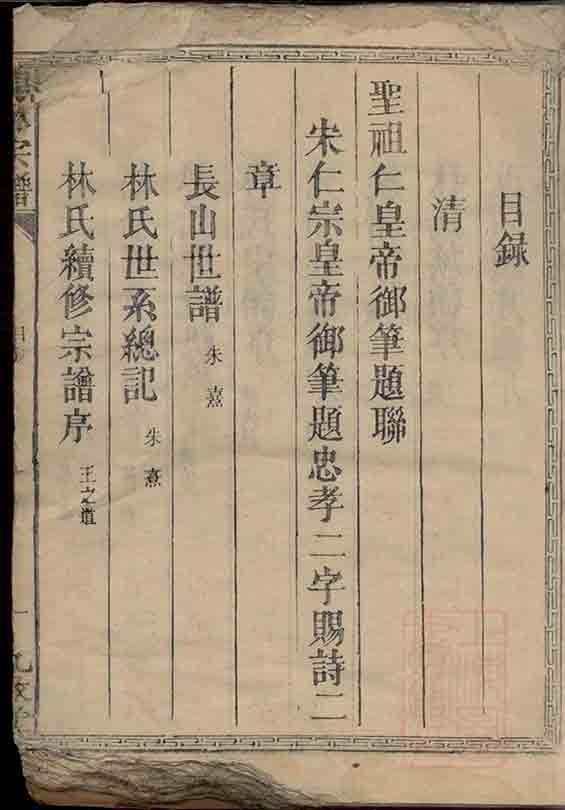 目録
清
聖祖仁皇帝御筆題聯
宋仁宗皇帝御筆題忠孝二字賜詩二
章
長山世譜 朱熹
林氏世系總記 朱熹
林氏續修宗譜序 王之道
宗譜
目
一